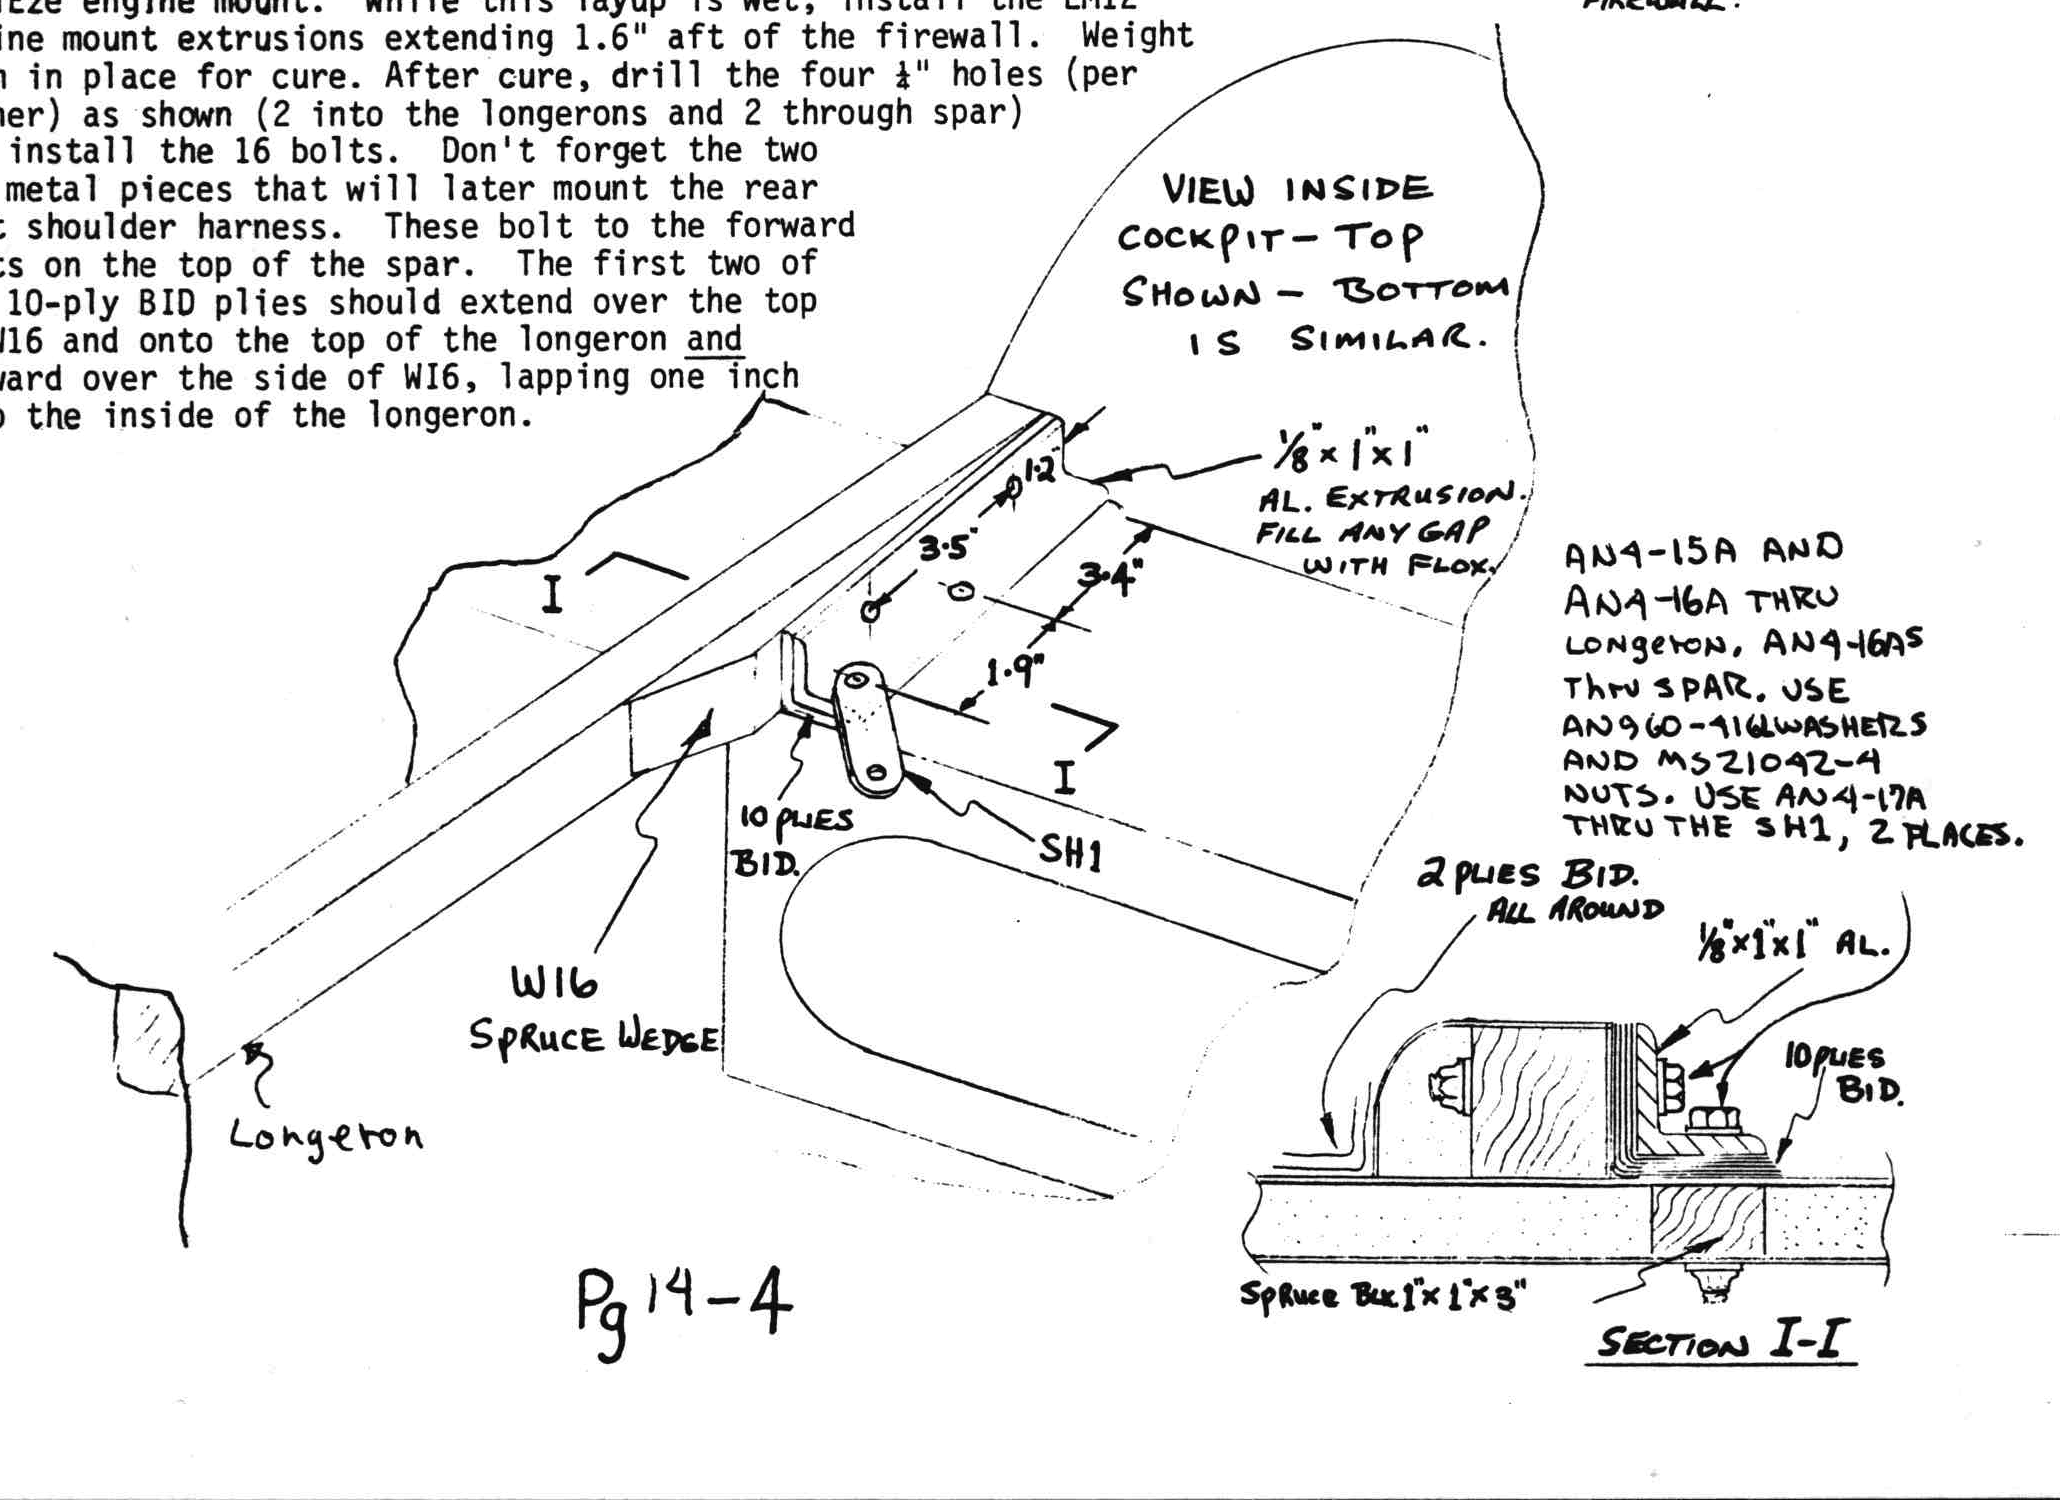 engine mount. While this layup is wet, install the
mount extrusions extending 1.6" aft of the firewall. Weight
in place for cure. After cure, drill the four ¼" holes (per
as shown (2 into the longerons and 2 through spar)
install the 16 bolts. Don't forget the two
metal pieces that will later mount the rear
shoulder harness. These bolt to the forward
on the top of the spar. The first two of
10-ply BID plies should extend over the top
and onto the top of the longeron and
over the side of WI6, lapping one inch
the inside of the longeron.
FIREWALL.
VIEW INSIDE
COCKPIT - TOP
SHOWN - BOTTOM
IS SIMILAR.
1/8" x 1" x 1"
AL. EXTRUSION.
FILL ANY GAP
WITH FLOX.
1.2"
3.5"
3.4"
1.9"
I
I
AN4-15A AND
AN4-16A THRU
LONGERON. AN4-16AS
THRU SPAR. USE
AN960-416L WASHERS
AND MS21042-4
NUTS. USE AN4-17A
THRU THE SH1, 2 PLACES.
10 PLIES
BID.
SH1
W16
SPRUCE WEDGE
Longeron
2 PLIES BID.
ALL AROUND
1/8" x 1" x 1" AL.
10 PLIES
BID.
SPRUCE BLK 1" x 1" x 3"
SECTION I-I
Pg 14-4